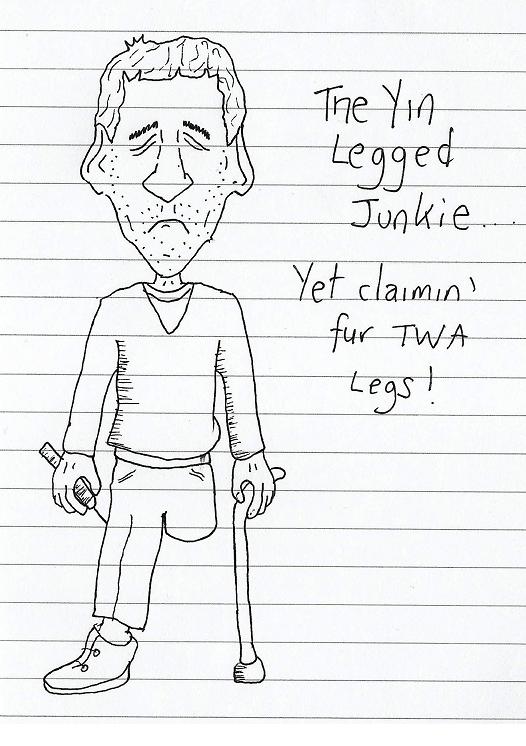 The Yin
Legged
Junkie...
Yet claimin'
fur TWA
Legs!